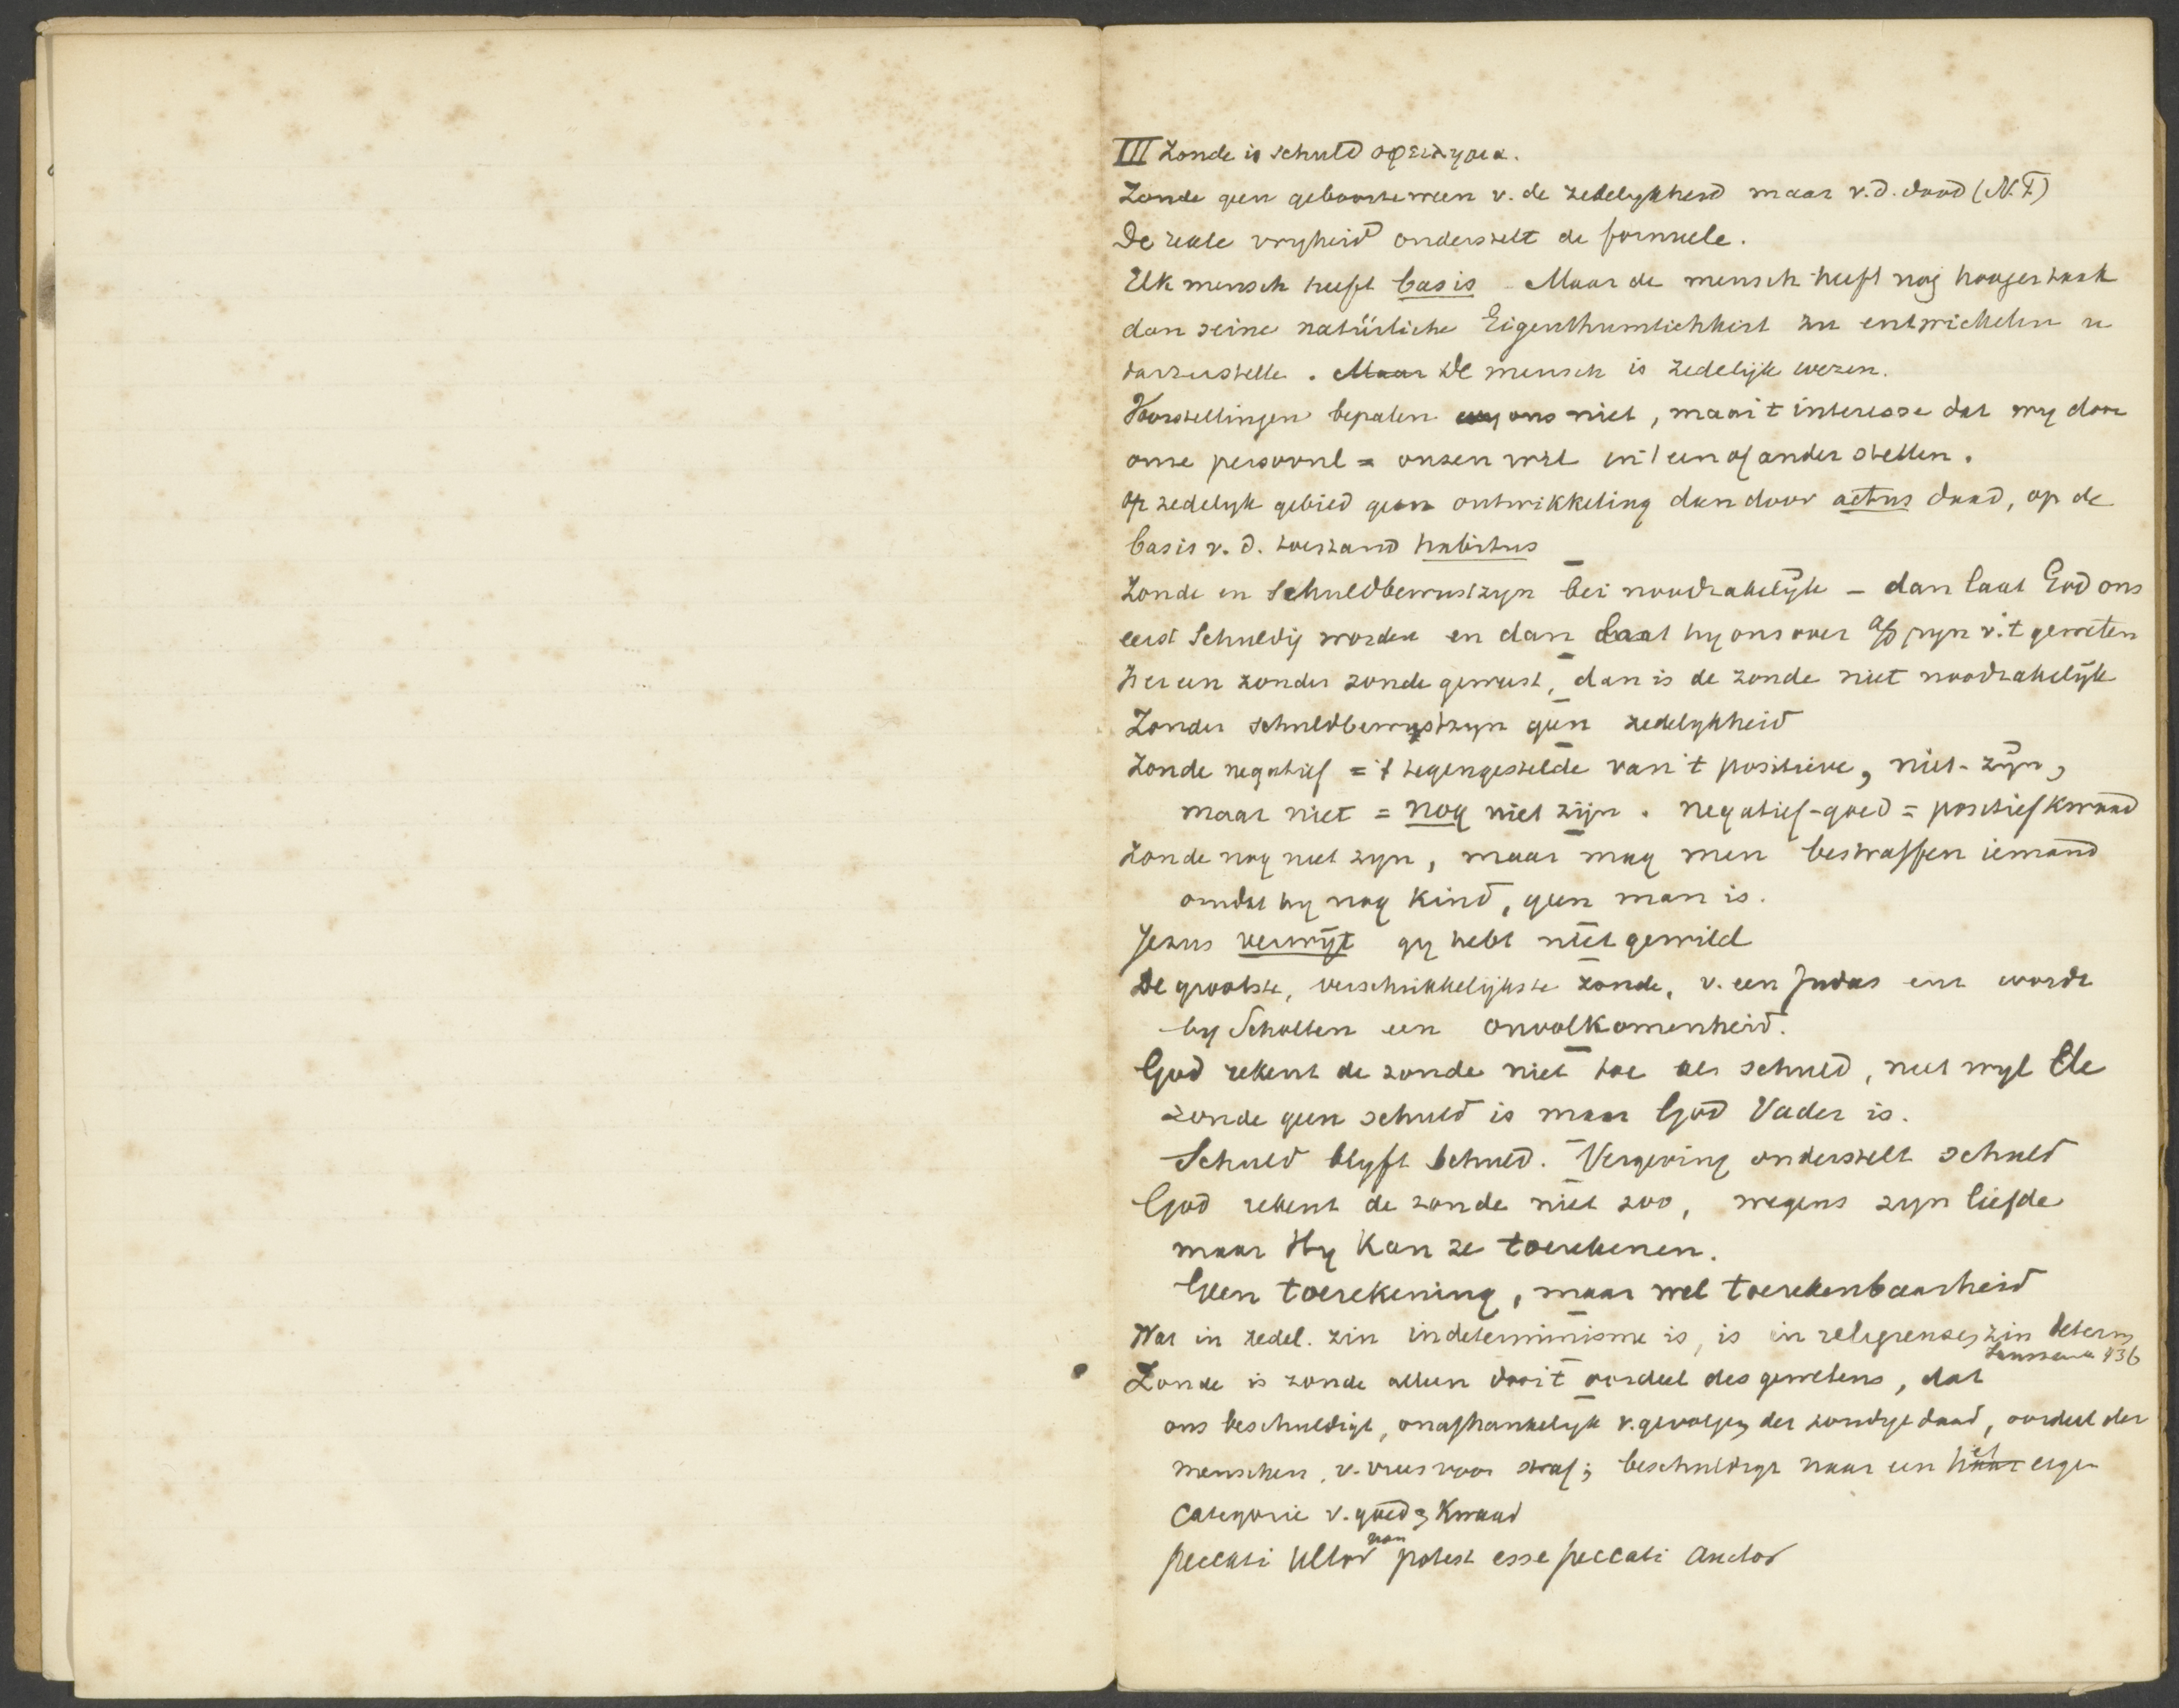 III Zonde is schuld οφειλημα.
Zonde geen geboorteween v. de zedelykheid maar v.d. dood (N.T)
De reale vryheid onderstelt de formeele.
Elk mensch heeft basis Maar de mensch heeft nog hooger taak
dan seine natürliche Eigenthumlichkeit zu entwickeln u
darzustelle. Maar De mensch is zedelijk wezen.
Voorstellingen bepalen wy ons niet, maar 't interesse dat wy door
onze persoonl = onzen wil in 't een of ander stellen.
Op zedelyk gebied geen ontwikkeling dan door actus daad, op de
basis v. d. toestand habitus
Zonde en Schuldbewustzyn bei noodzakelyk – dan laat God ons
eerst Schuldig worden en dan laat hy ons over a/d pyn v. 't geweten
Is er een zonder zonde geweest, dan is de zonde niet noodzakelyk
Zonder schuldbewustzyn geen zedelykheid
Zonde negatief = 't tegengestelde van 't positieve, niet-zyn,
maar niet = nog niet zijn. negatief-goed = positief kwaad
Zonde nog niet zyn, maar mag men bestraffen iemand
omdat hy nog kind, geen man is.
Jezus verwyt gy hebt niet gewild
De grootste, verschrikkelijkste zonde, v. een Judas enz wordt
by Scholten een onvolkomenheid.
God rekent de zonde niet toe als schuld, niet wyl de
zonde geen schuld is maar God Vader is.
Schuld blyft schuld. Vergeving onderstelt schuld
God rekent de zonde niet zoo, wegens zyn liefde
maar Hy kan ze toerekenen.
Geen toerekening, maar wel toerekenbaarheid
Wat in zedel. zin indeterminisme is, is in religieuzen zin determ
136
Zonde is zonde alleen door 't oordeel des gewetens, dat
ons beschuldigt, onafhankelyk v. gevolgen der zondige daad, oordeel der
menschen, v. vrees voor straf; beschuldigt naar een haar el eigen
categorie v. goed & kwaad
peccati ultor non potest esse peccati auctor